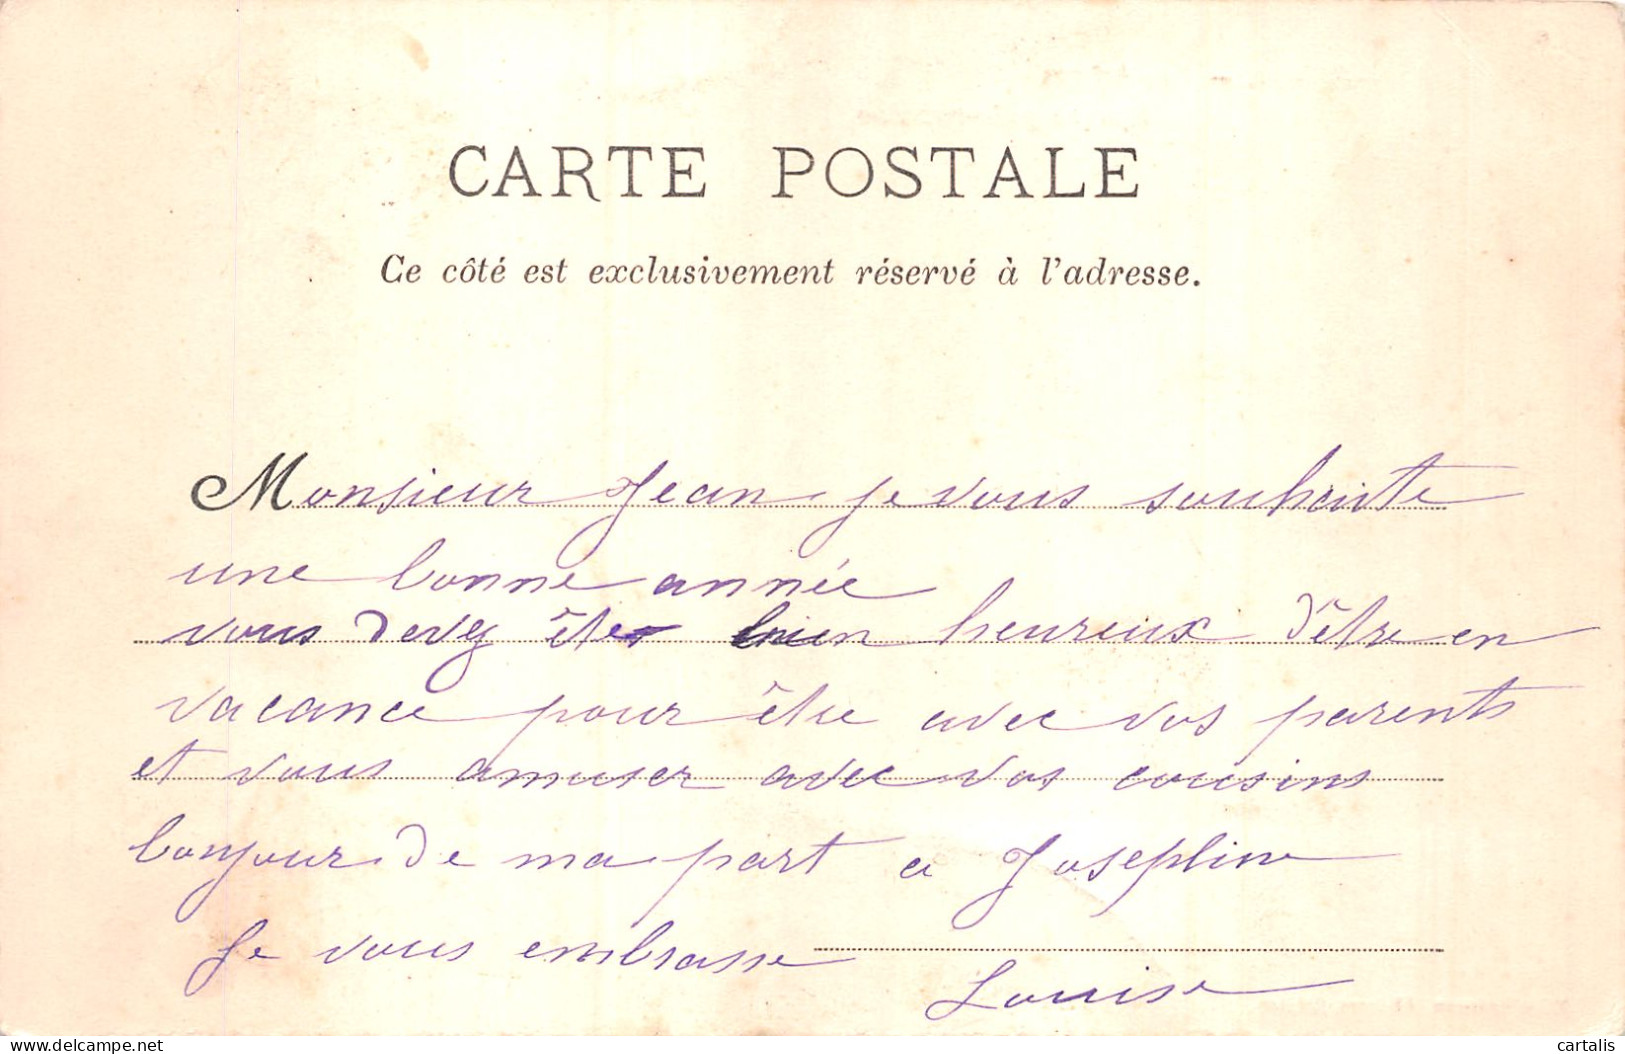 CARTE POSTALE
Ce côté est exclusivement réservé à l'adresse.
Monsieur Jean je vous souhaite
une bonne année
vous devez être bien heureux d'être en
vacance pour être avec vos parents
et vous amuser avec vos cousins
bonjour de ma part a Josephine
Je vous embrasse
Louise
delcampe.net
cartalis